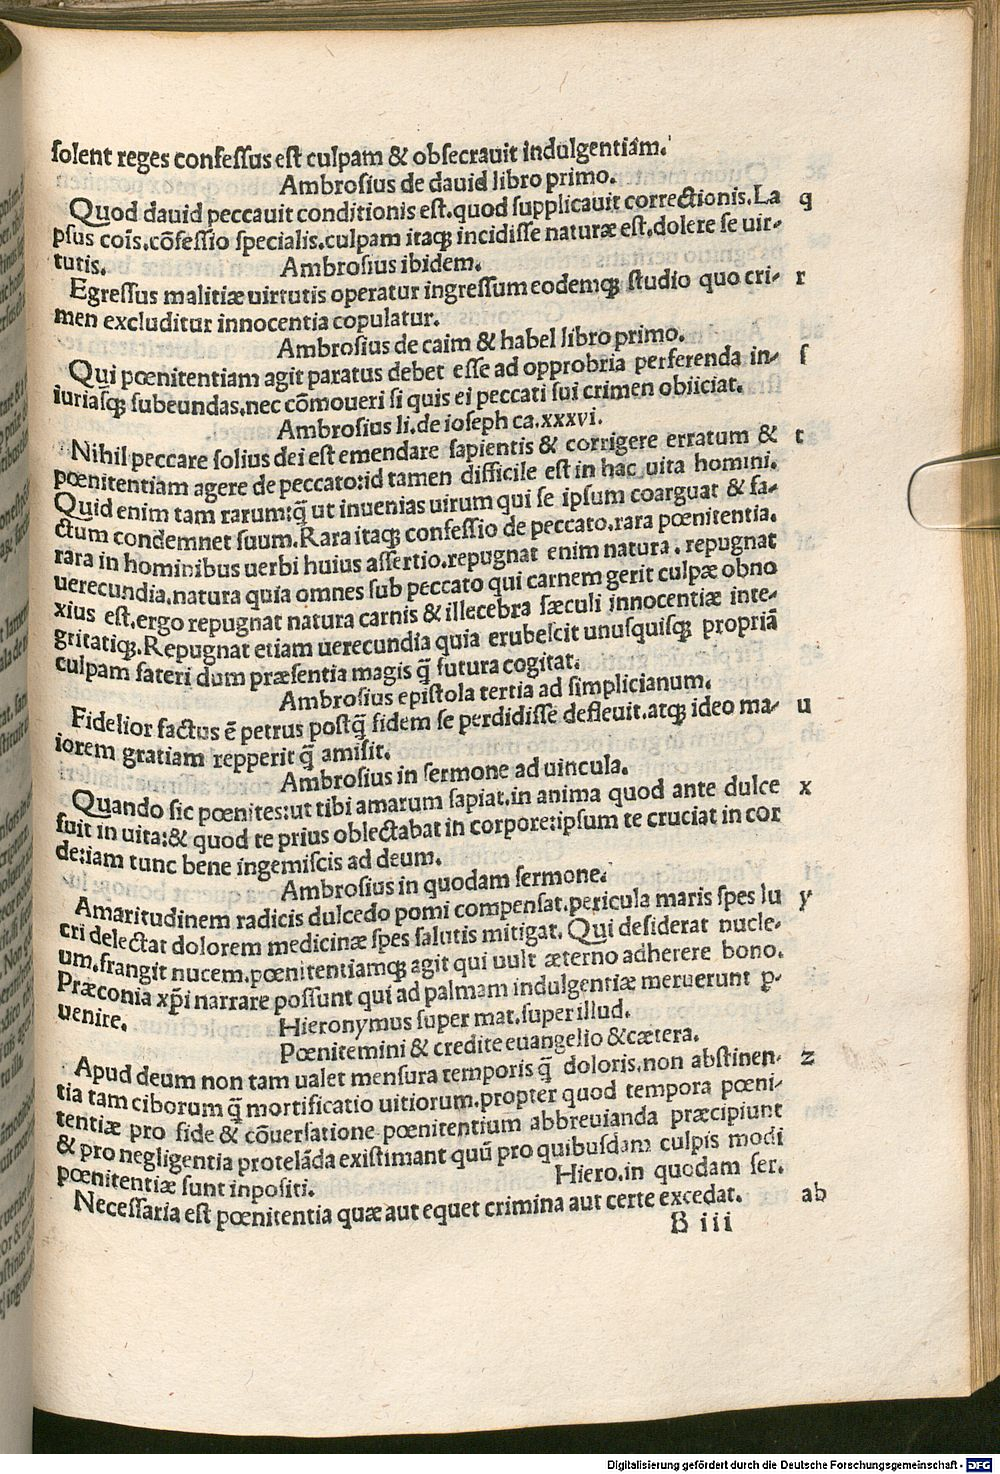 solent reges confessus est culpam & obsecrauit indulgentiam.
Ambrosius de dauid libro primo.
Quod dauid peccauit conditionis est.quod supplicauit correctionis.La q
psus cois̄.cōfessio specialis.culpam itaqꝫ incidisse naturæ est.dolere se uir-
tutis. Ambrosius ibidem.
Egressus malitiæ uirtutis operatur ingressum eodemqꝫ studio quo cri- r
men excluditur innocentia copulatur.
Ambrosius de caim & habel libro primo.
Qui pœnitentiam agit paratus debet esse ad opprobria perferenda in- s
iuriasqꝫ subeundas.nec cōmoueri si quis ei peccati sui crimen obiiciat.
Ambrosius li.de ioseph ca.xxxvi.
Nihil peccare solius dei est emendare sapientis & corrigere erratum & t
pœnitentiam agere de peccato:id tamen difficile est in hac uita homini.
Quid enim tam rarum:q̄ ut inuenias uirum qui se ipsum coarguat & fa-
ctum condemnet suum.Rara itaqꝫ confessio de peccato.rara pœnitentia.
rara in hominibus uerbi huius assertio.repugnat enim natura.repugnat
uerecundia.natura quia omnes sub peccato qui carnem gerit culpæ obno
xius est.ergo repugnat natura carnis & illecebra sæculi innocentiæ inte-
gritatiqꝫ.Repugnat etiam uerecundia quia erubescit unusquisqꝫ propriā
culpam fateri dum præsentia magis q̄ futura cogitat.
Ambrosius epistola tertia ad simplicianum.
Fidelior factus ē petrus postq̄ fidem se perdidisse defleuit.atqꝫ ideo ma- u
iorem gratiam repperit q̄ amisit.
Ambrosius in sermone ad uincula.
Quando sic pœnites:ut tibi amarum sapiat.in anima quod ante dulce x
fuit in uita:& quod te prius oblectabat in corpore:ipsum te cruciat in cor
de:iam tunc bene ingemiscis ad deum.
Ambrosius in quodam sermone.
Amaritudinem radicis dulcedo pomi compensat.pericula maris spes lu y
cri delectat dolorem medicinæ spes salutis mitigat.Qui desiderat nucle-
um.frangit nucem.pœnitentiamqꝫ agit qui uult æterno adherere bono.
Præconia xp̄i narrare possunt qui ad palmam indulgentiæ meruerunt ꝑ-
uenire. Hieronymus super mat.super illud.
Pœnitemini & credite euangelio & cætera.
Apud deum non tam ualet mensura temporis q̄ doloris.non abstinen- z
tia tam ciborum q̄ mortificatio uitiorum.propter quod tempora pœni-
tentiæ pro fide & cōuersatione pœnitentium abbreuianda præcipiunt
& pro negligentia protelāda existimant quū pro quibusdam culpis modi
pœnitentiæ sunt inpositi. Hiero.in quodam ser.
Necessaria est pœnitentia quæ aut equet crimina aut certe excedat. ab
B iii
Digitalisierung gefördert durch die Deutsche Forschungsgemeinschaft - DFG